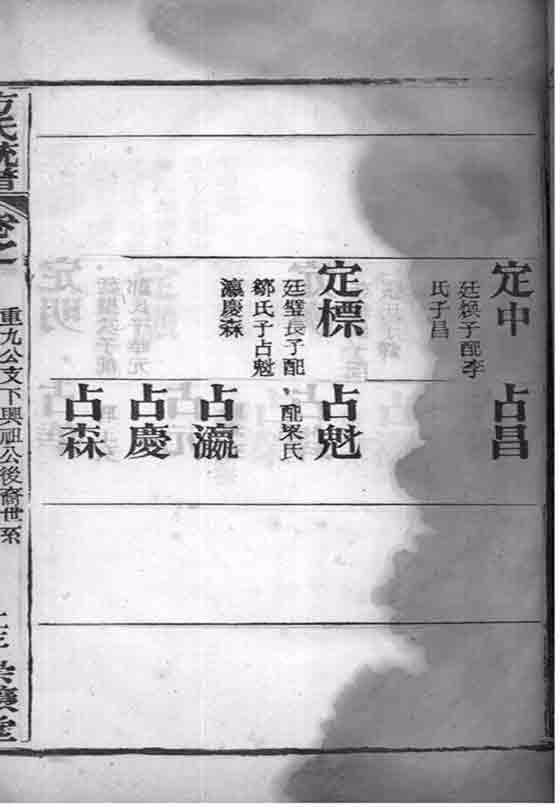 定中
廷槙子配李
氏子昌
占昌
定標
廷璧長子配
鄒氏子占魁
瀛慶森
占魁
配梁氏
占瀛
占慶
占森
方氏統譜
卷之一
重九公支下興祖公後裔世系